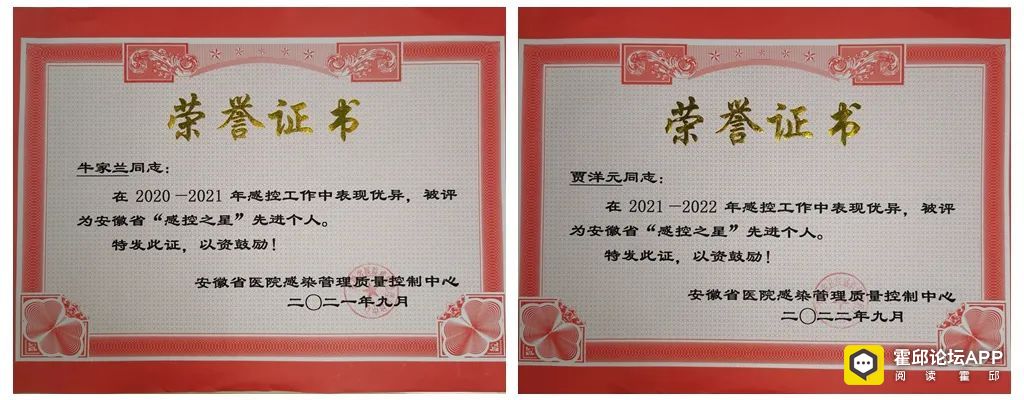 荣誉证书
牛家兰同志：
在 2020－2021 年感控工作中表现优异，被评
为安徽省“感控之星”先进个人。
特发此证，以资鼓励！
安徽省医院感染管理质量控制中心
二〇二一年九月
荣誉证书
贾洋元同志：
在 2021－2022 年感控工作中表现优异，被评
为安徽省“感控之星”先进个人。
特发此证，以资鼓励！
安徽省医院感染管理质量控制中心
二〇二二年九月
霍邱论坛APP
阅读霍邱